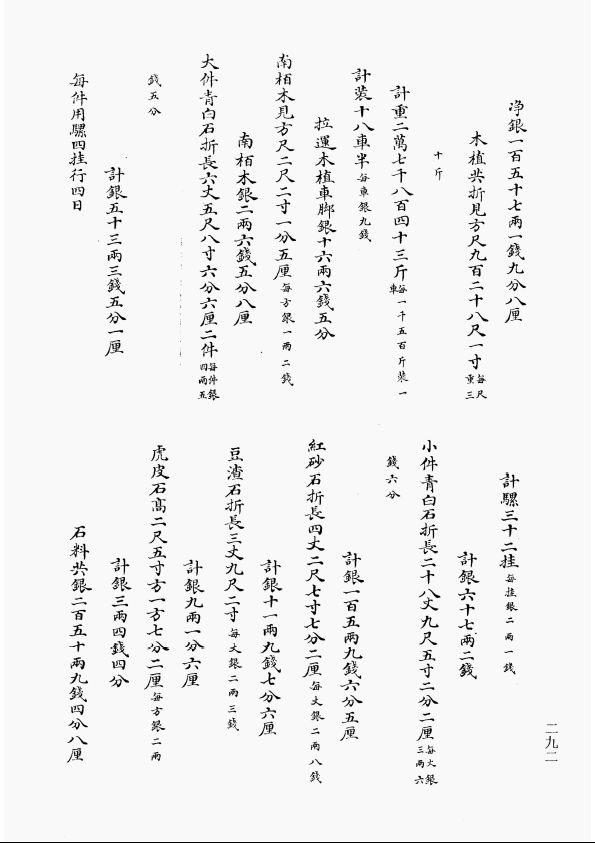 净銀一百五十七兩一錢九分八厘
木植共折見方尺九百二十八尺一寸每尺重三
十斤
計重二萬七千八百四十三斤每一千五百斤裝一車
計裝十八車半每車銀九錢
拉運木植車脚銀十六兩六錢五分
南栢木見方尺二尺二寸一分五厘每方銀一兩二錢
南栢木銀二兩六錢五分八厘
大件青白石折長六丈五尺八寸六分六厘二件每件銀四兩五
錢五分
計銀五十三兩三錢五分一厘
每件用騾四挂行四日
計騾三十二挂每挂銀二兩一錢
計銀六十七兩二錢
小件青白石折長二十八丈九尺五寸二分二厘每丈銀三兩六
錢六分
計銀一百五兩九錢六分五厘
紅砂石折長四丈二尺七寸七分二厘每丈銀二兩八錢
計銀十一兩九錢七分六厘
豆渣石折長三丈九尺二寸每丈銀二兩三錢
計銀九兩一分六厘
虎皮石高二尺五寸方一方七分二厘每方銀二兩
計銀三兩四錢四分
石料共銀二百五十兩九錢四分八厘
二九二